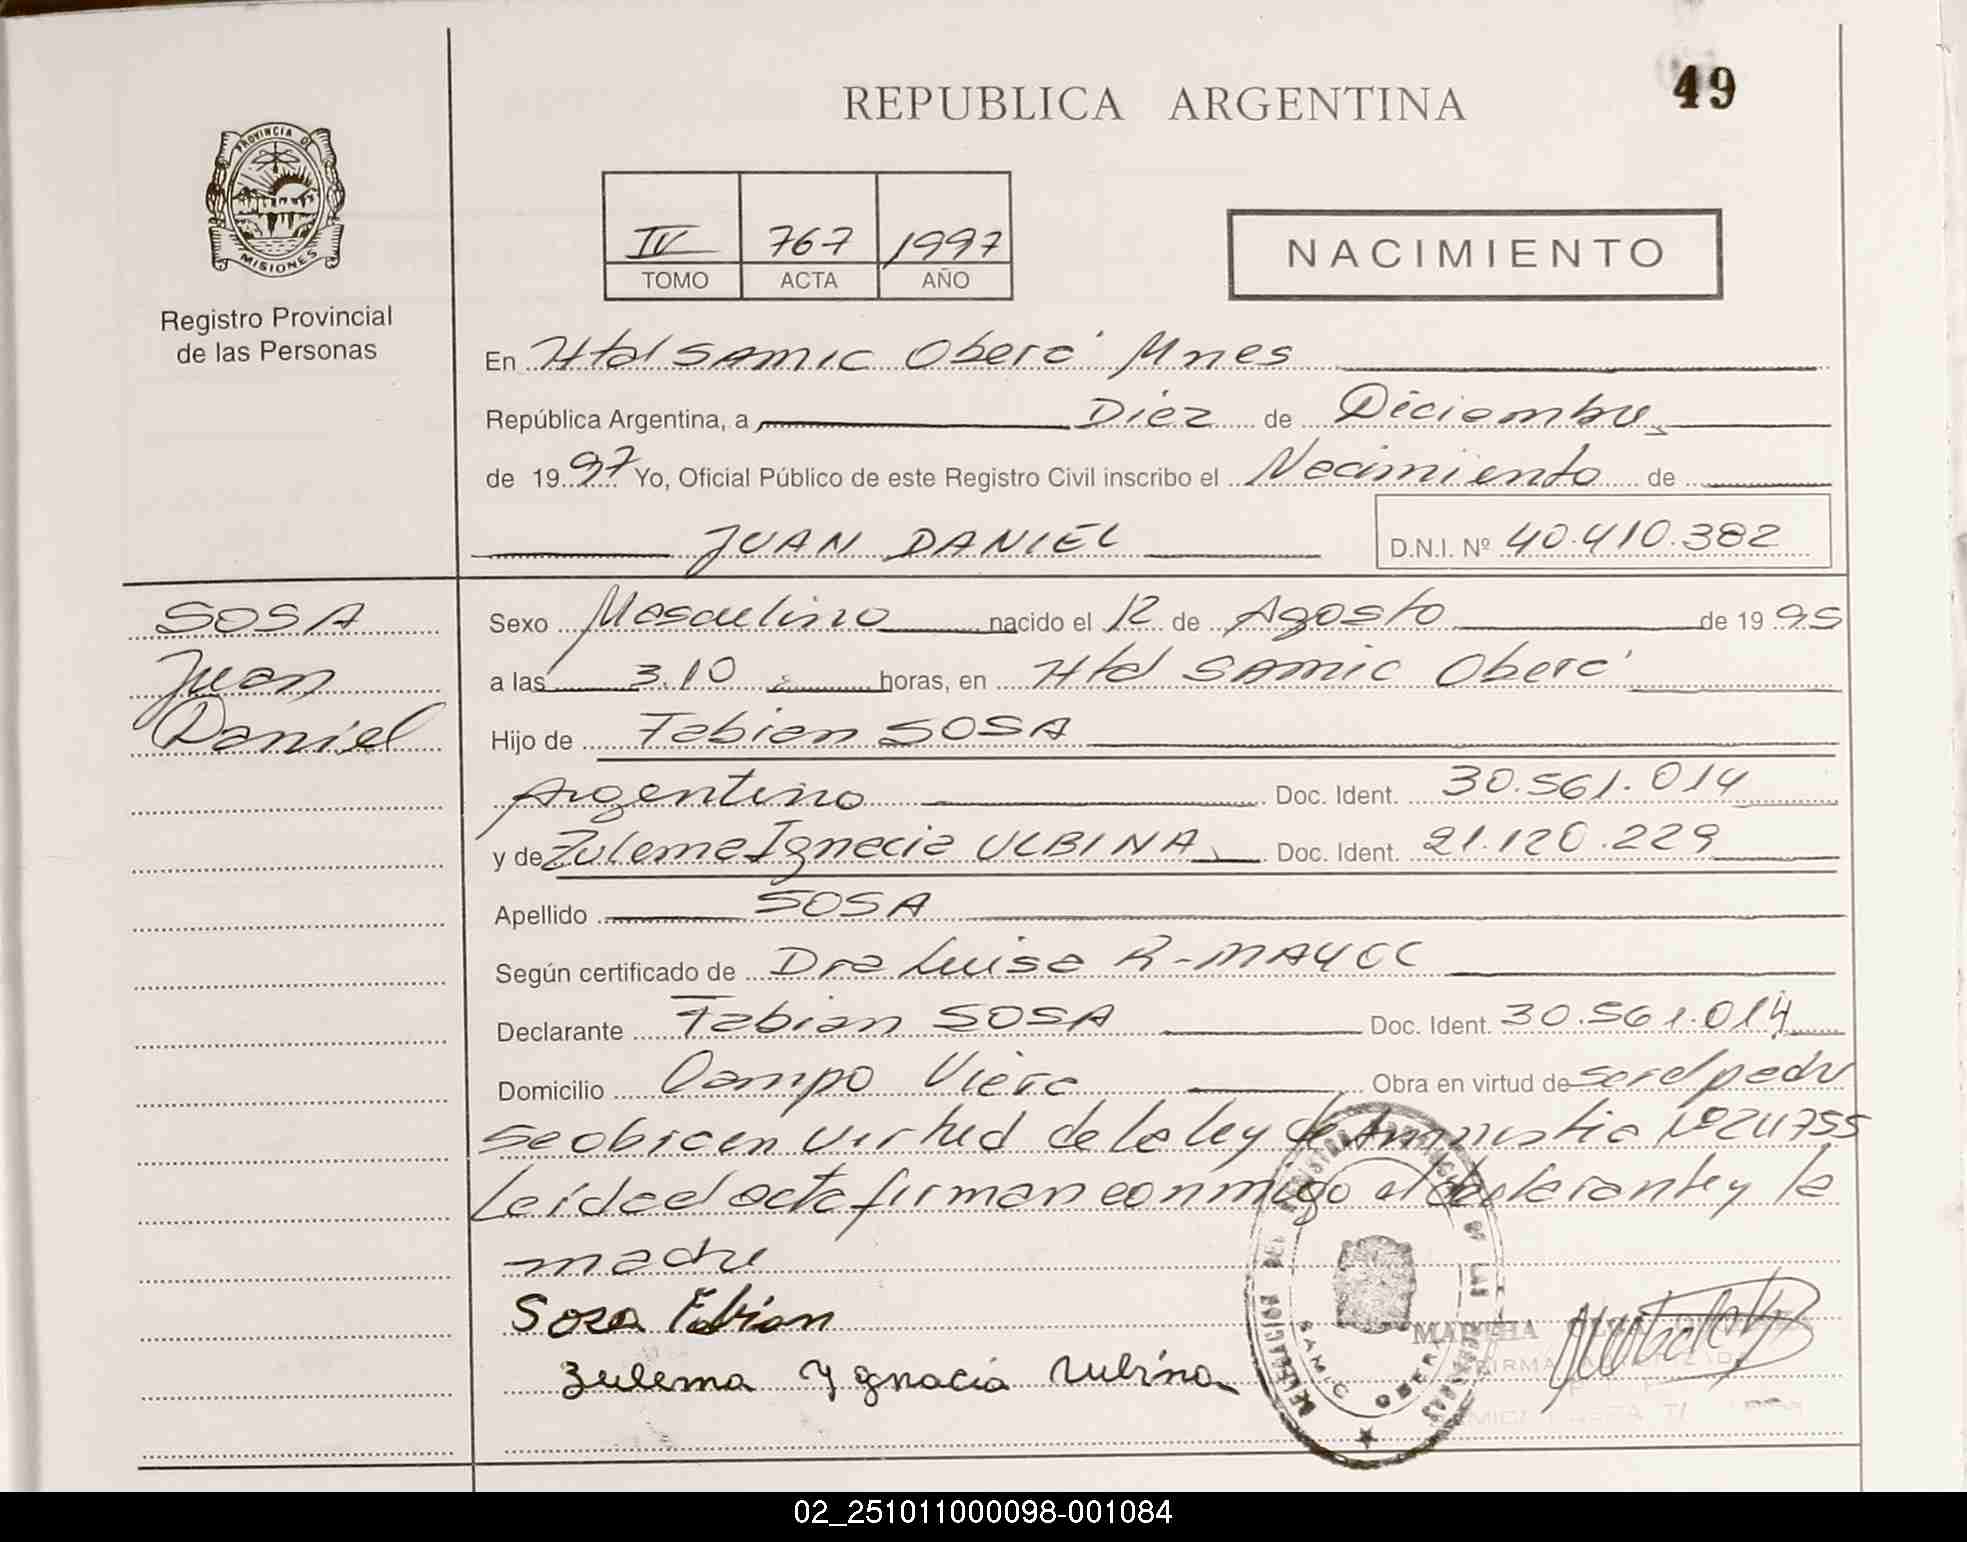 49
REPUBLICA ARGENTINA
PROVINCIA DE
MISIONES
Registro Provincial
de las Personas
IV 767 1997
TOMO ACTA AÑO
NACIMIENTO
En Htal SAMIC Oberá Mnes
República Argentina, a Diez de Diciembre
de 1997 Yo, Oficial Público de este Registro Civil inscribo el Nacimiento de
JUAN DANIEL D.N.I. Nº 40.410.382
SOSA
Juan
Daniel
Sexo Masculino nacido el 12 de Agosto de 1995
a las 3.10 horas, en Htal SAMIC Oberá
Hijo de Fabian SOSA
Argentino Doc. Ident. 30.561.014
y de Zulema Ignacia ULBINA Doc. Ident. 21.120.229
Apellido SOSA
Según certificado de Dra Luisa R-MAYOL
Declarante Fabian SOSA Doc. Ident. 30.561.014
Domicilio Campo Viera Obra en virtud de ser el padre
se obra en virtud de la ley de Amnistia Nº 24755
Leída el acta firman conmigo el declarante y la
madre
Sosa Fabian
Zulema Ygnacia Ulbina
DELEGACION DEL REGISTRO PROVINCIAL DE LAS PERSONAS
SAMIC OBERA
MARTHA
FIRMA AUTORIZADA
02_251011000098-001084